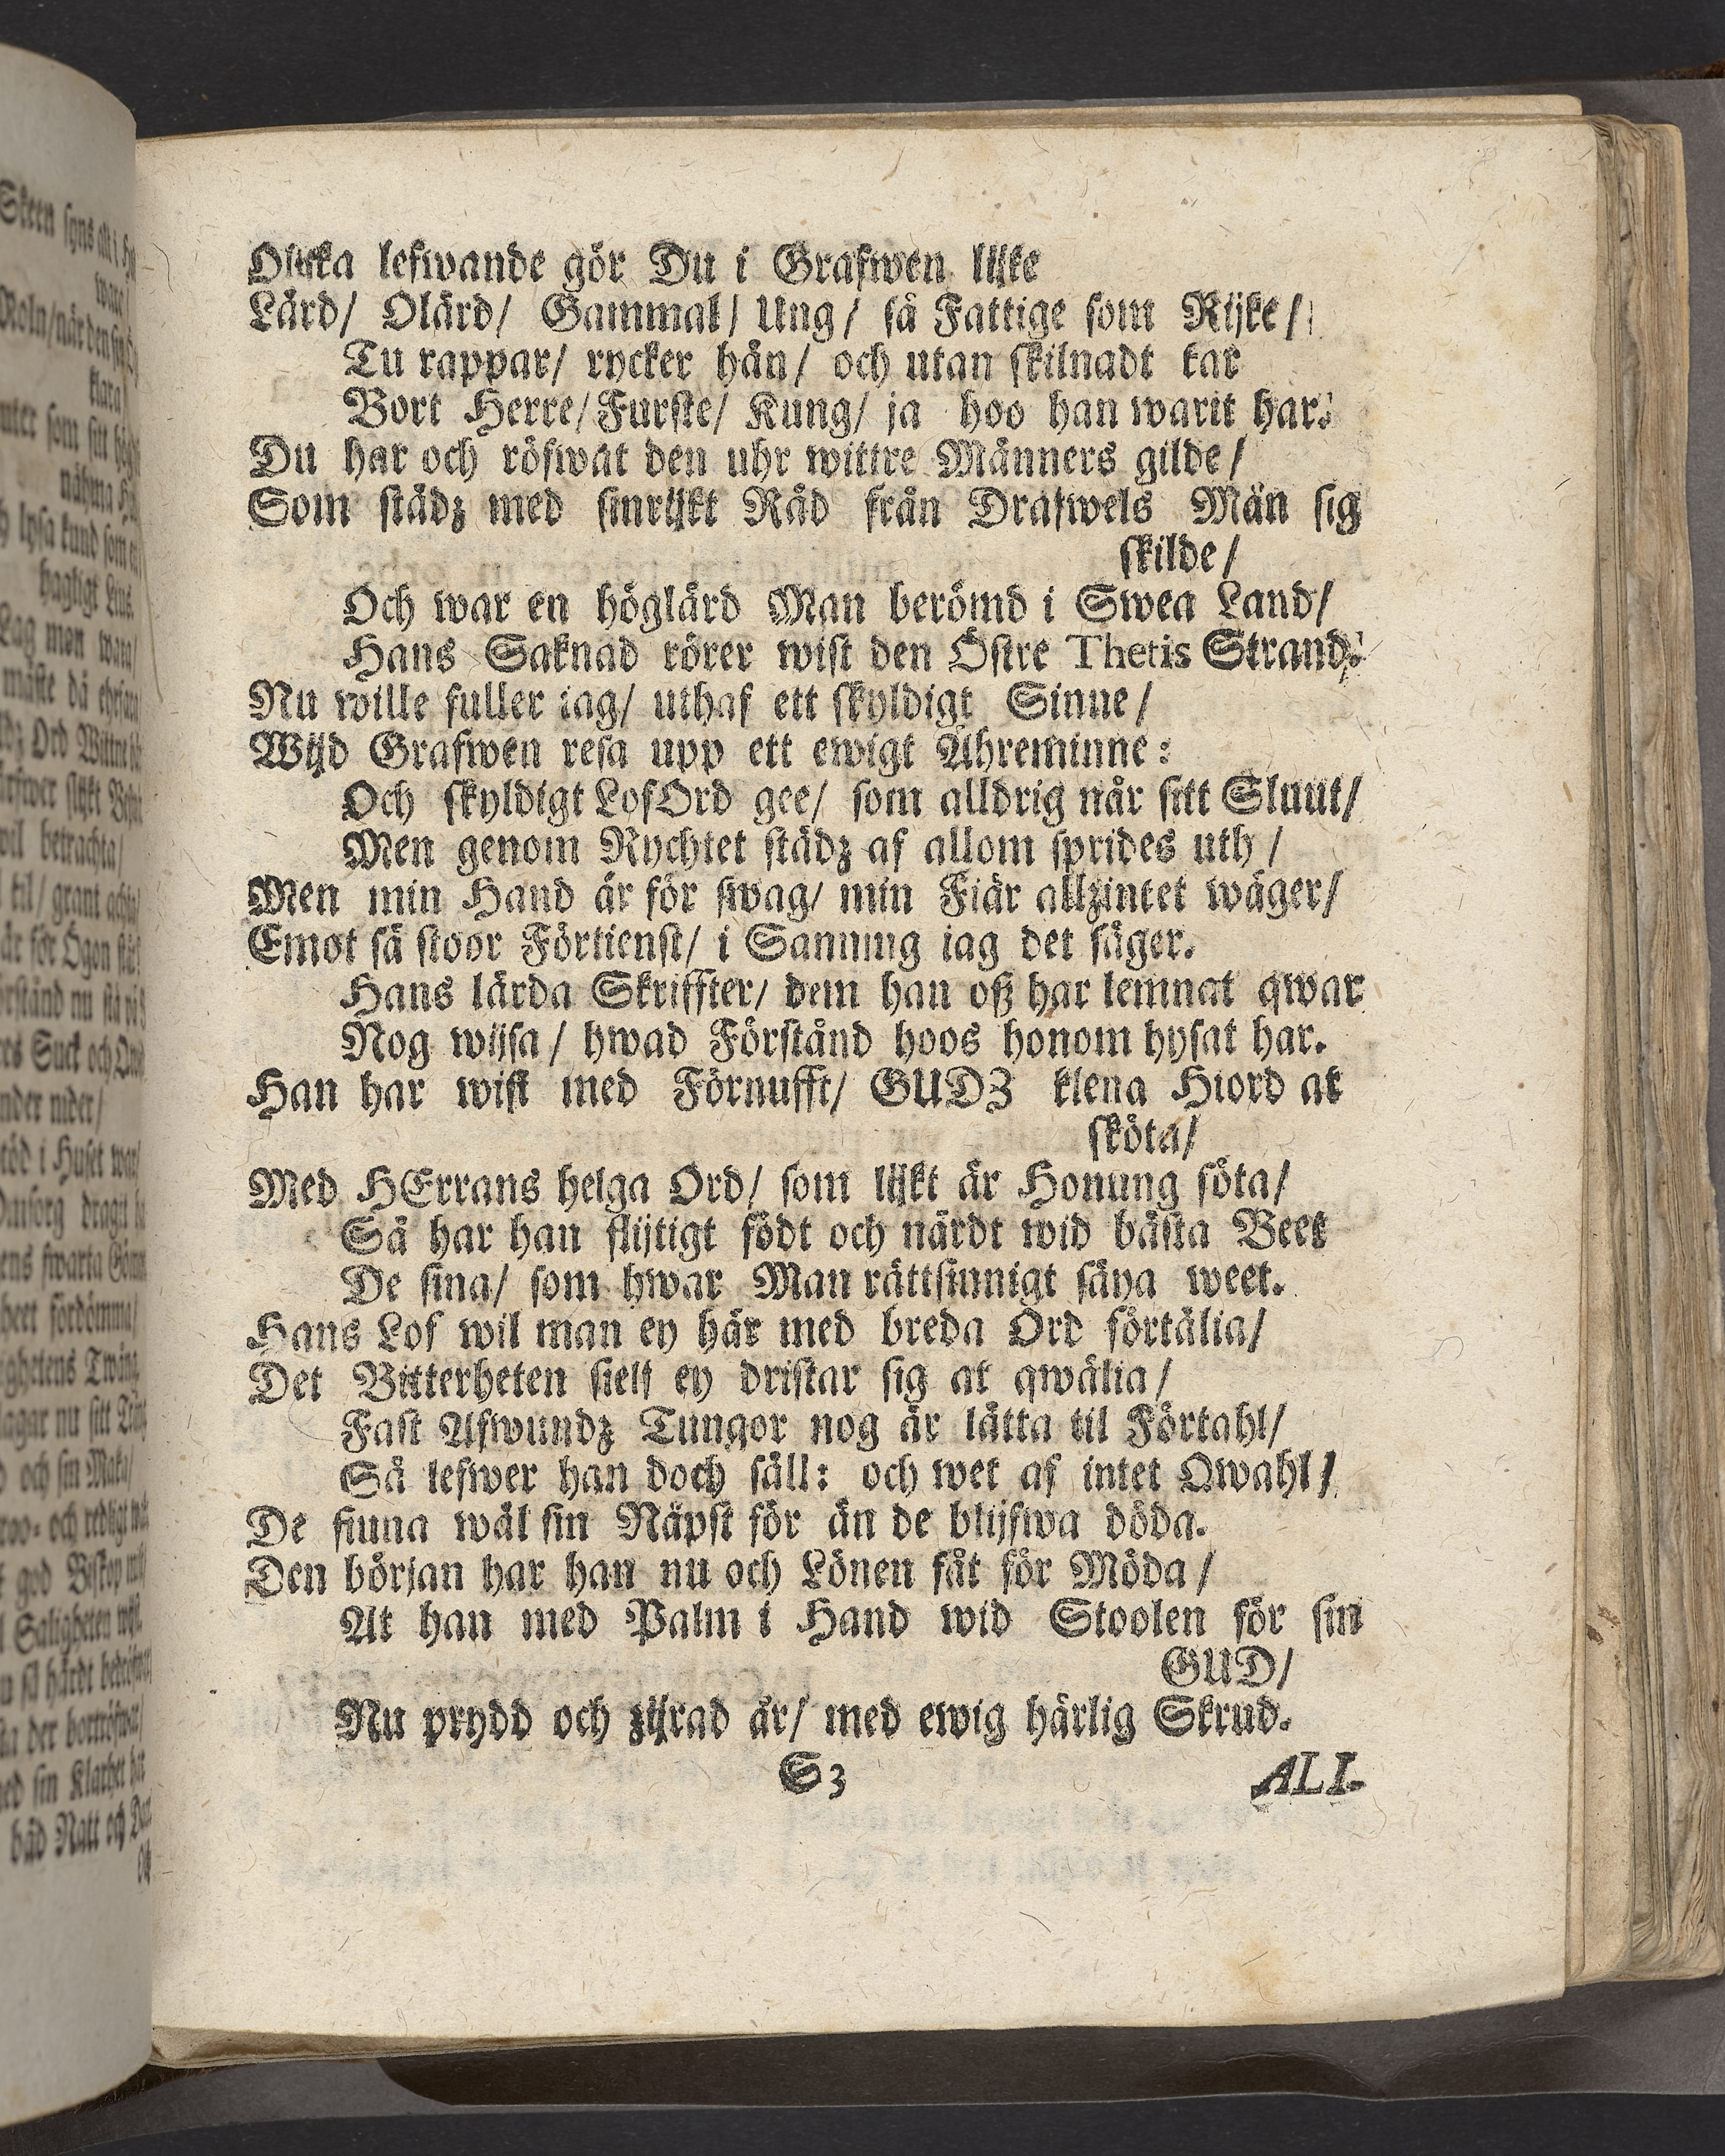 Olijka lefwande gör Du i Grafwen lijke
Lärd/ Olärd/ Gammal/ Ung/ så Fattige som Rijke/
Tu rappar/ rycker hän/ och utan skilnadt tar
Bort Herre/ Furste/ Kung/ ja hoo han warit har.
Du har och röfwat den uhr wittre Männers gilde/
Som städz med sinrijkt Råd från Drafwels Män sig
skilde/
Och war en höglärd Man berömd i Swea Land/
Hans Saknad rörer wist den Östre Thetis Strand.
Nu wille fuller iag/ uthaf ett skyldigt Sinne/
Wijd Grafwen resa upp ett ewigt Ähreminne:
Och skyldigt LofOrd gee/ som alldrig når sitt Sluut/
Men genom Rychtet städz af allom sprides uth/
Men min Hand är för swag/ min Fiär allzintet wäger/
Emot så stoor Förtienst/ i Sanning iag det säger.
Hans lärda Skriffter/ dem han oß har lemnat qwar
Nog wijsa/ hwad Förstånd hoos honom hysat har.
Han har wist med Förnufft/ GUDZ klena Hiord at
sköta/
Med HErrans helga Ord/ som lijkt är Honung söta/
Så har han flijtigt födt och närdt wid bästa Beet
De sina/ som hwar Man rättsinnigt säya weet.
Hans Lof wil man ey här med breda Ord förtälia/
Det Bitterheten sielf ey dristar sig at qwälia/
Fast Afwundz Tungor nog är lätta til Förtahl/
Så lefwer han doch säll: och wet af intet Qwahl/
De finna wäl sin Näpst för än de blijfwa döda.
Den början har han nu och Lönen fåt för Möda/
At han med Palm i Hand wid Stoolen för sin
GUD/
Nu prydd och zijrad är/ med ewig härlig Skrud.
S3 ALI-